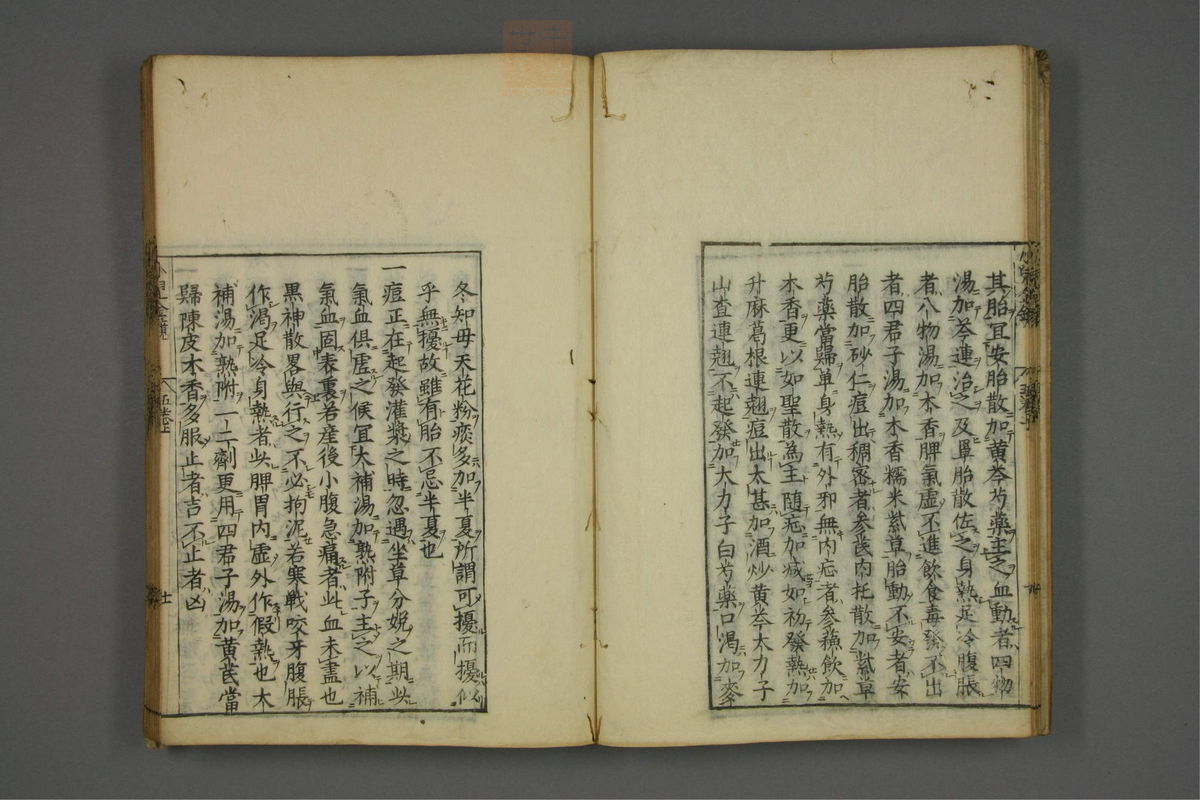 其胎宜安胎散加黄芩芍藥主之血動者四物
湯加芩連治之及罩胎散佐之身熱足冷腹脹
者八物湯加木香脾氣虚不進飲食毒發不出
者四君子湯加木香糯米紫草胎動不安者安
胎散加砂仁痘出稠密者参芪内托散加紫草
芍藥當歸單身熱有外邪無内疟者参蘓飲加
木香更以如聖散為主随疟加减如初發熱加
升麻葛根連翹痘出太甚加酒炒黄芩大力子
山査連翹不起發加大力子白芍藥口渴加麥
冬知母天花粉痰多加半夏所謂可擾而擾似
乎無擾故雖有胎不忌半夏也
一痘正在起發灌漿之時忽遇坐草分娩之期此
氣血俱虚之候宜大補湯加熟附子主之以補
氣血固表裏若産後小腹急痛者此血未盡也
黒神散畧與行之不必拘泥若寒戰咬牙腹脹
作渴足冷身熱者此脾胃内虚外作假熱也木
補湯加熟附一二劑更用四君子湯加黄芪當
歸陳皮木香多服止者吉不止者凶